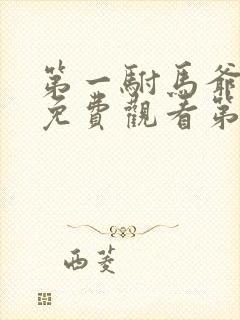 第一駙馬爺
免費觀看第
西菱